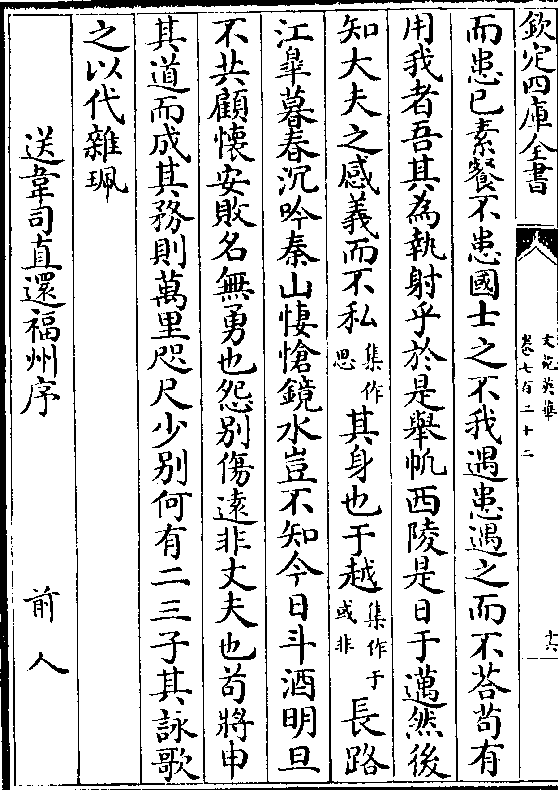 欽定四庫全書
文苑英華
卷七百二十二
十六
而患已素餐不患國士之不我遇患遇之而不荅茍有
用我者吾其為執射乎於是舉帆西陵是日于邁然後
知大夫之感義而不私集作思其身也于越集作于或非長路
江臯暮春沉吟秦山悽愴鏡水豈不知今日斗酒明旦
不共顧懷安敗名無勇也怨别傷逺非丈夫也茍將申
其道而成其務則萬里咫尺少别何有二三子其詠歌
之以代雜珮
送韋司直還福州序 前人